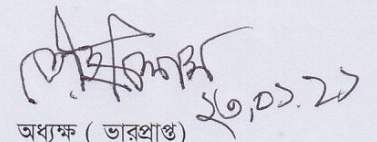 ২৩.০১.২১
অধ্যক্ষ ( ভারপ্রাপ্ত)